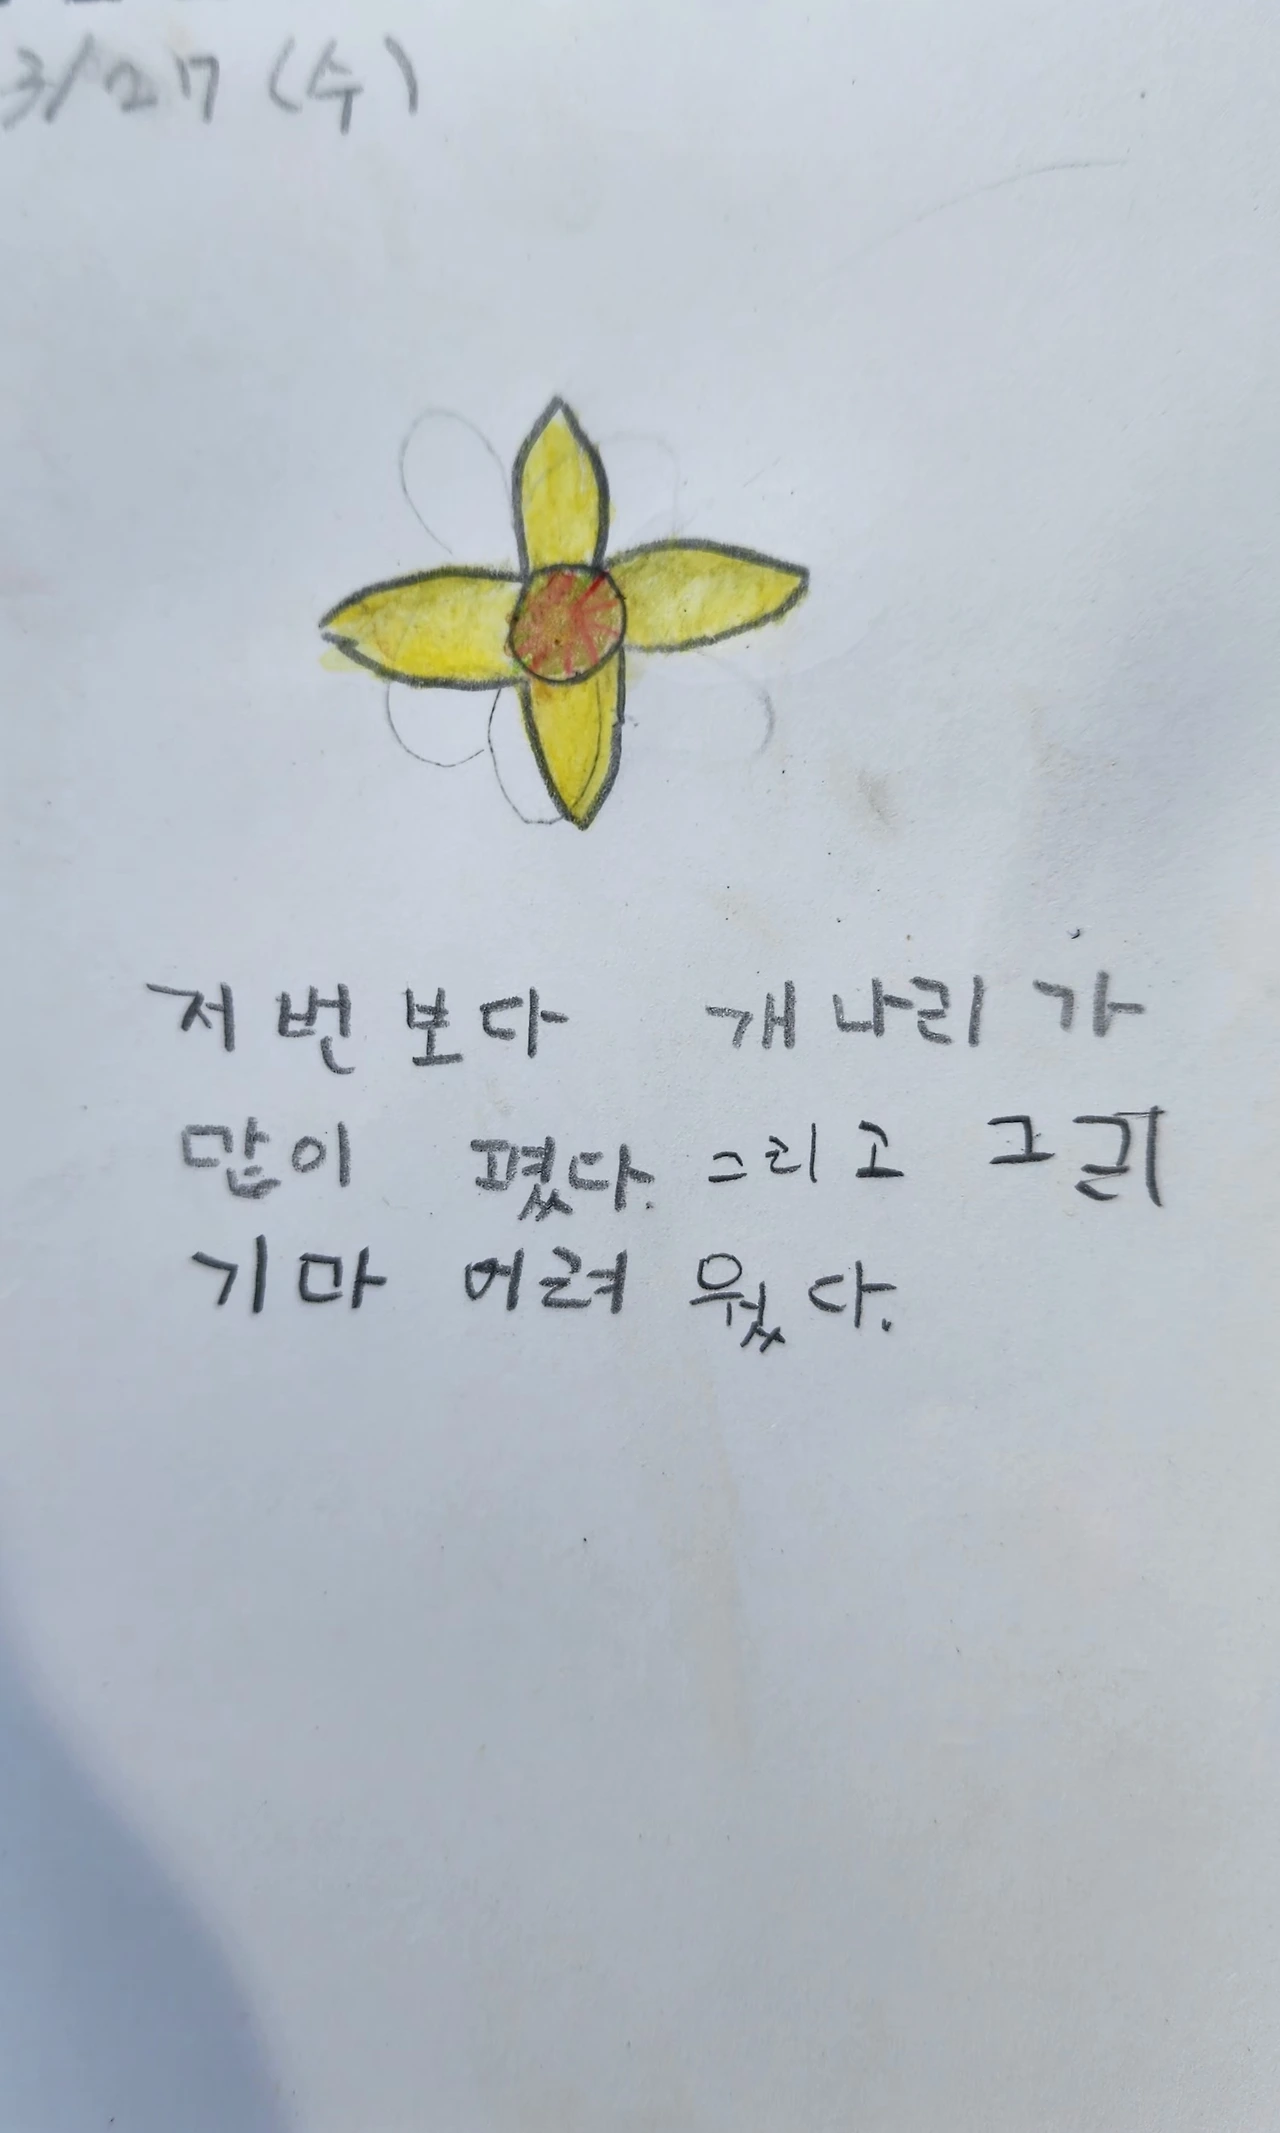 3/27 (수)
저번보다 개나리가
많이 폈다. 그리고 그리
기마 어려웠다.